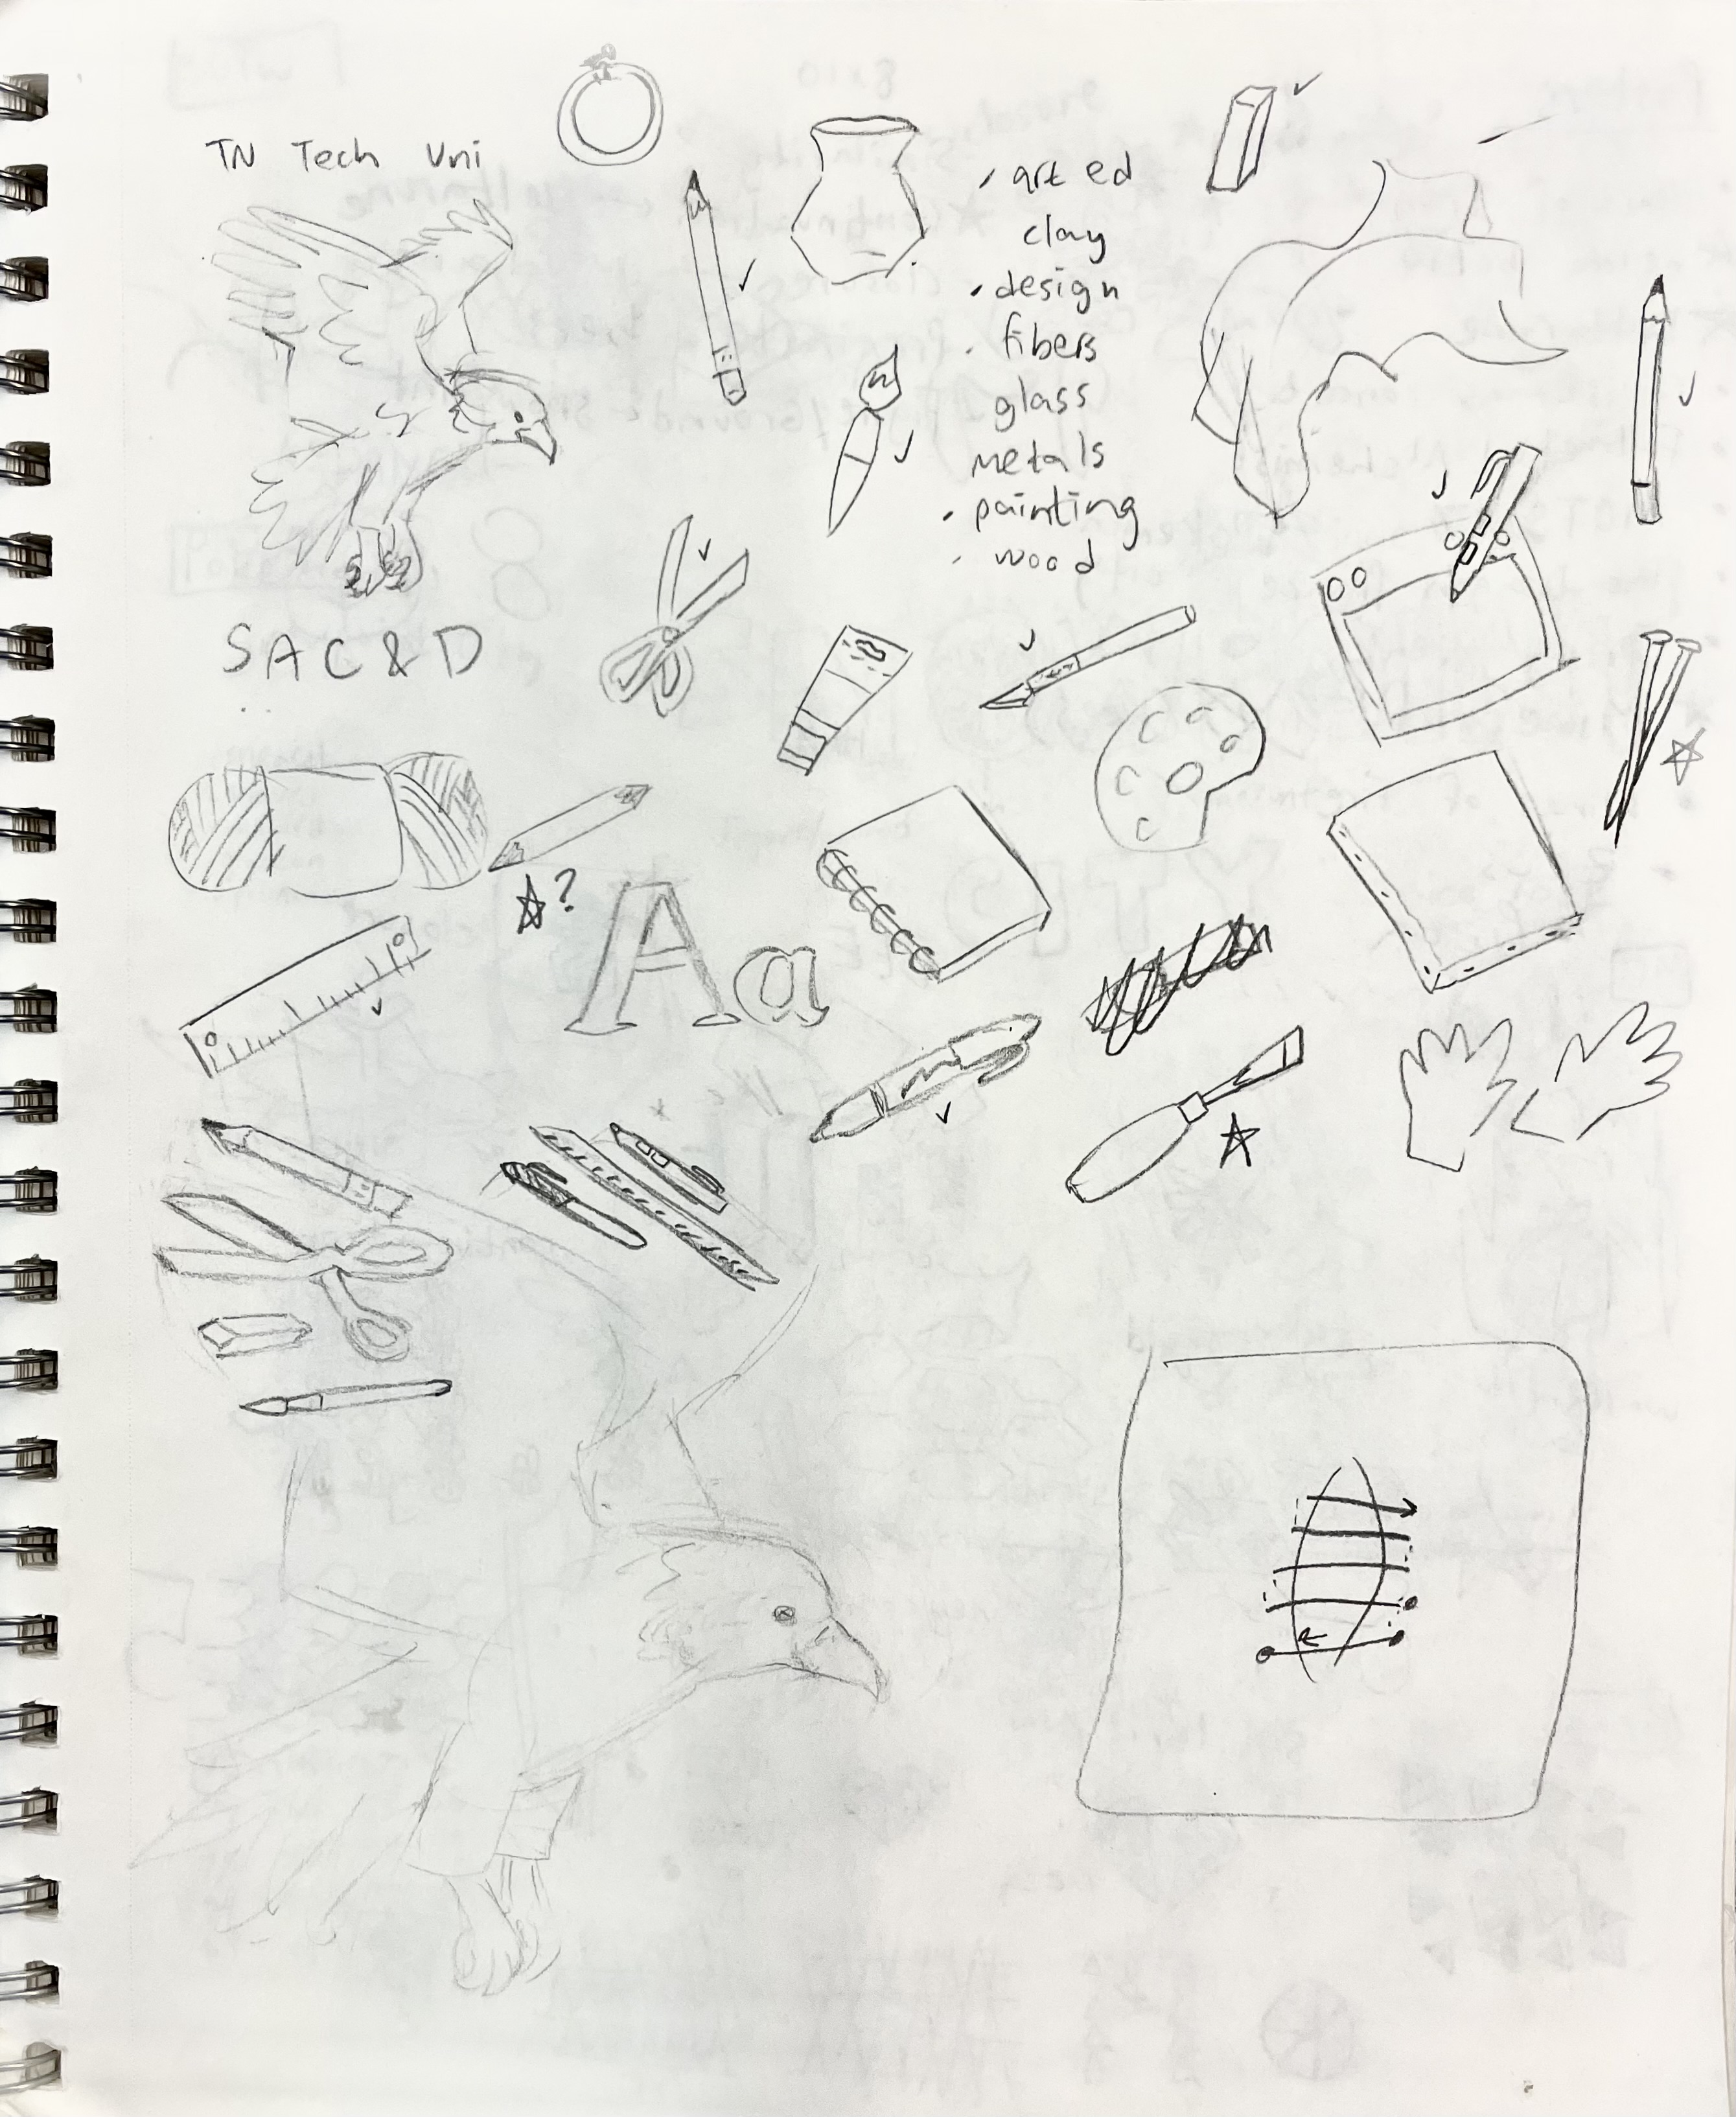 TN Tech Uni
• art ed
clay
• design
• fibers
glass
metals
• painting
• wood
SAC&D
?
Aa